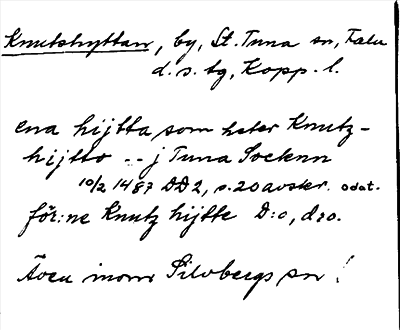 Knutshyttan, by, St. Tuna sn, Falu
d. s. tg, Kopp. l.
ena hijtta som heter Knutz-
hijtto -- j Tuna Sockenn
10/2 1487 DD2, s. 20 avskr. odat.
för:ne Knutz hijtte D:o, d:o.
Även inom Silvbergs sn!